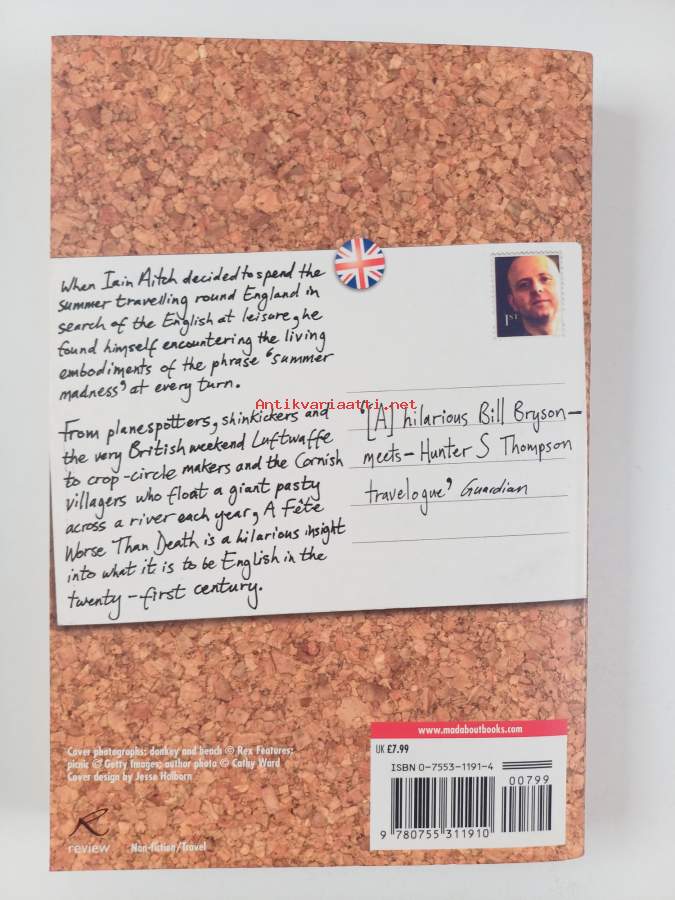 When Iain Aitch decided to spend the
summer travelling round England in
search of the English at leisure, he
found himself encountering the living
embodiments of the phrase ‘summer
madness’ at every turn.
From planespotters, shinkickers and
the very British weekend Luftwaffe
to crop-circle makers and the Cornish
villagers who float a giant pasty
across a river each year, A Fête
Worse Than Death is a hilarious insight
into what it is to be English in the
twenty-first century.
1ST
Antikvariaatti.net
‘[A] hilarious Bill Bryson-
meets-Hunter S Thompson
travelogue’ Guardian
Cover photographs: donkey and beach © Rex Features;
picnic © Getty Images; author photo © Cathy Ward
Cover design by Jesse Holborn
R
review
Non-fiction/Travel
www.madaboutbooks.com
UK £7.99
ISBN 0-7553-1191-4
00799
9 780755 311910